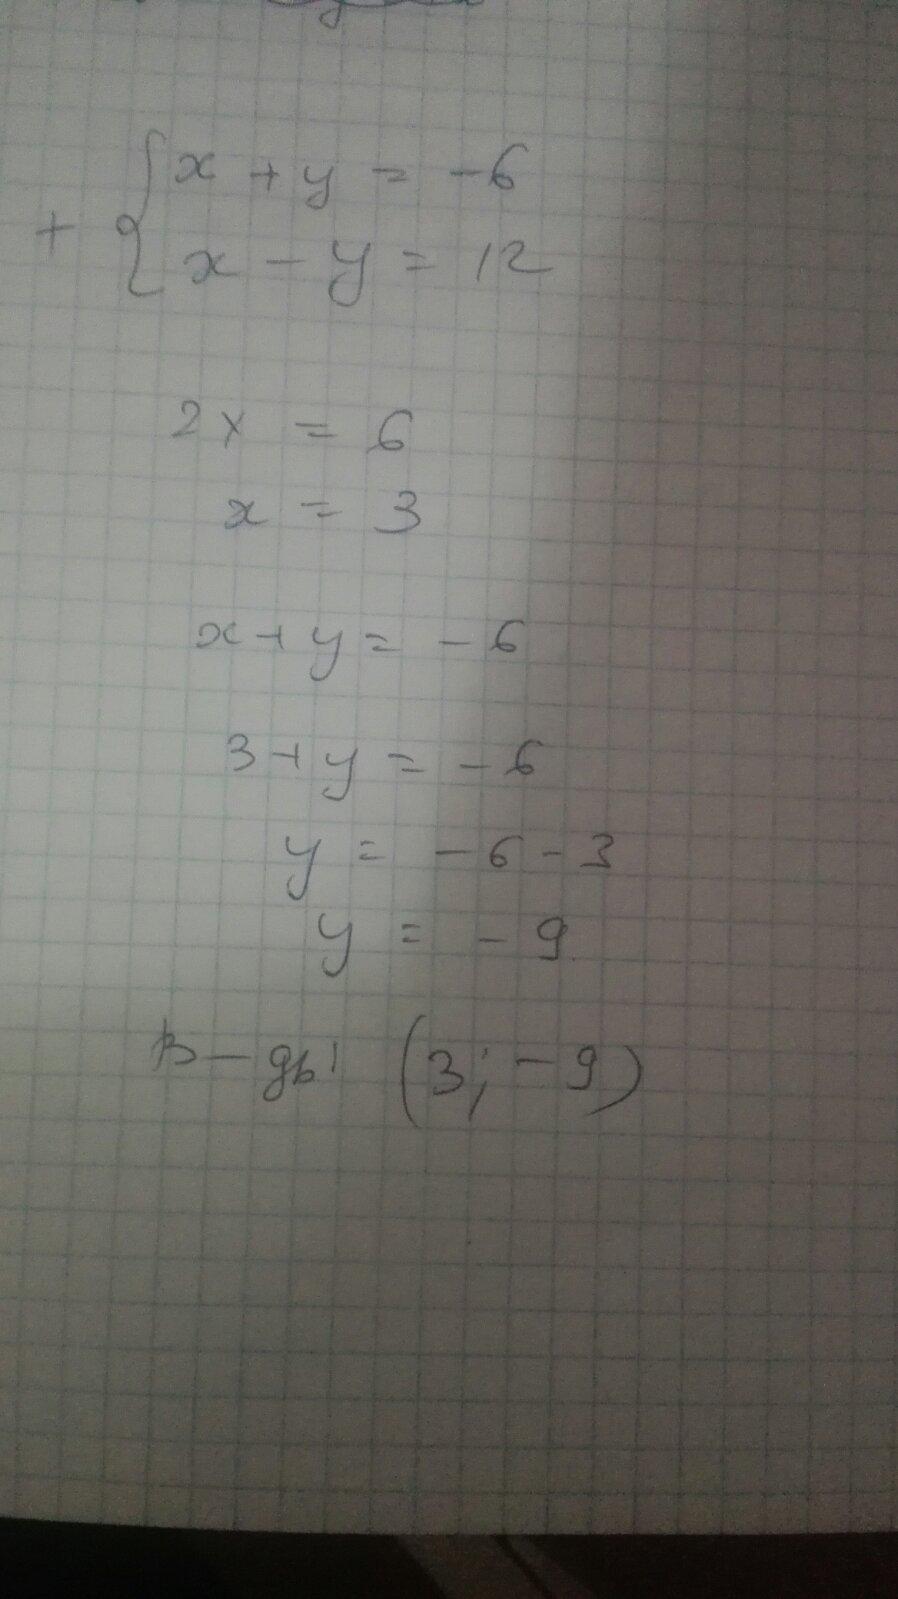 + { x + y = -6
x - y = 12
2x = 6
x = 3
x + y = -6
3 + y = -6
y = -6 - 3
y = -9
В-дь: (3; -9)